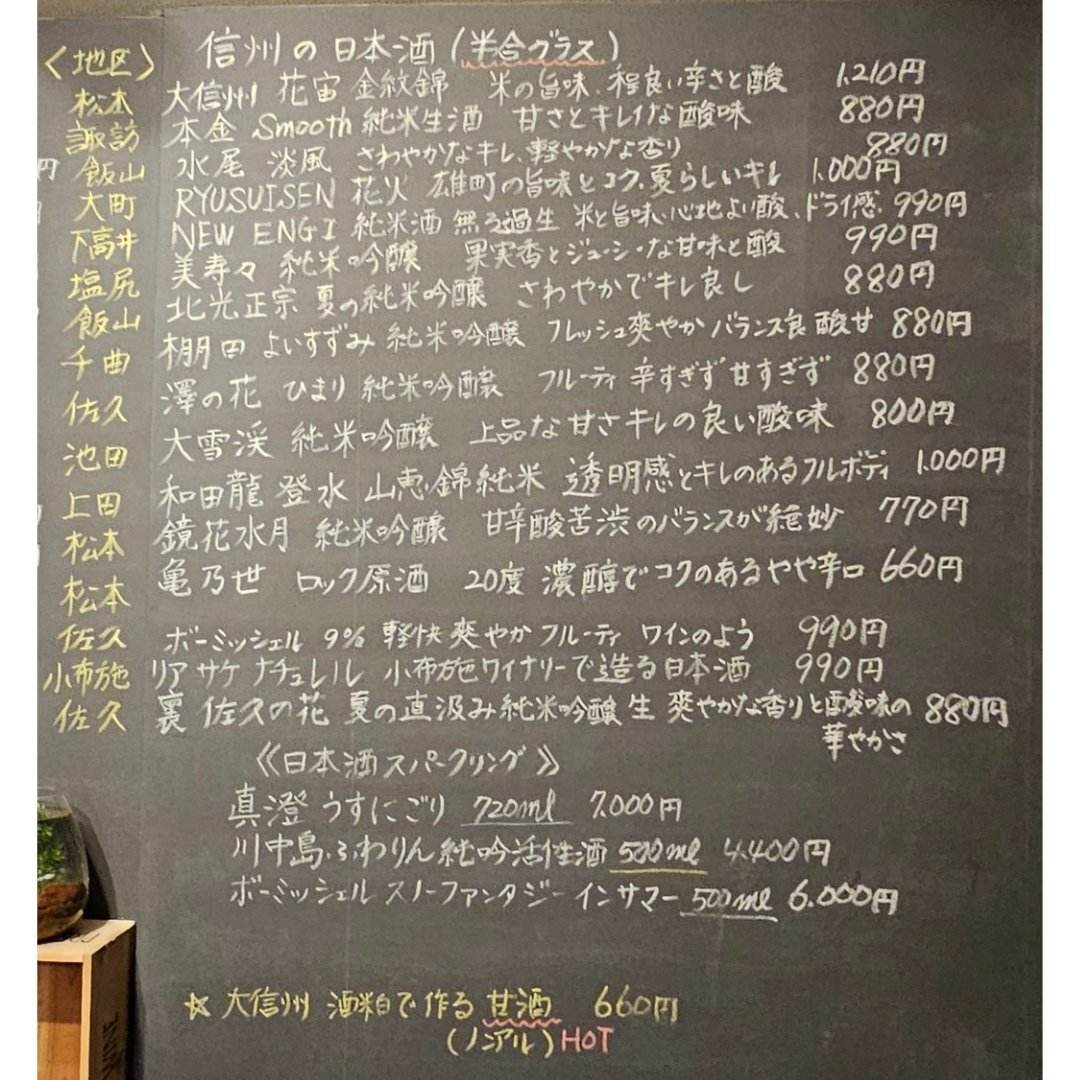 〈地区〉 信州の日本酒(半合グラス)
松本 大信州 花宙 金紋錦 米の旨味、程良い辛さと酸 1.210円
諏訪 本金 Smooth 純米生酒 甘さとキレイな酸味 880円
飯山 水尾 淡風 さわやかなキレ、軽やかな香り 880円
大町 RYUSUISEN 花火 雄町の旨味とコク、夏らしいキレ 1.000円
下高井 NEW ENGI 純米酒 無ろ過生 米と旨味、心地よい酸、ドライ感. 990円
塩尻 美寿々 純米吟醸 果実香とジューシーな甘味と酸 990円
飯山 北光正宗 夏の純米吟醸 さわやかでキレ良し 880円
千曲 棚田 よいすずみ 純米吟醸 フレッシュ爽やか バランス良 酸甘 880円
佐久 澤の花 ひまり 純米吟醸 フルーティ 辛すぎず 甘すぎず 880円
池田 大雪渓 純米吟醸 上品な甘さキレの良い酸味 800円
上田 和田龍 登水 山恵錦純米 透明感とキレのあるフルボディ 1.000円
松本 鏡花水月 純米吟醸 甘辛酸苦渋のバランスが絶妙 770円
松本 亀乃世 ロック原酒 20度 濃醇でコクのあるやや辛口 660円
佐久 ボーミッシェル 9% 軽快 爽やか フルーティ ワインのよう 990円
小布施 リア サケ ナチュレル 小布施ワイナリーで造る日本酒 990円
佐久 裏 佐久の花 夏の直汲み純米吟醸 生 爽やかな香りと酸味の 880円
華やかさ
《日本酒スパークリング》
真澄 うすにごり 720ml 7.000円
川中島.ふわりん純吟活性酒 500ml 4.400円
ボーミッシェル スノーファンタジーインサマー 500ml 6.000円
☆ 大信州 酒粕で作る 甘酒 660円
(ノンアル) HOT